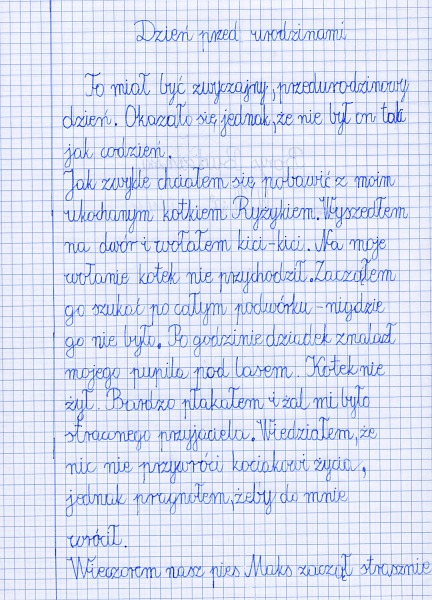 Dzień przed urodzinami
To miał być zwyczajny, przedurodzinowy
dzień. Okazało się jednak, że nie był on taki
jak codzień.
Jak zwykle chciałem się pobawić z moim
ukochanym kotkiem Ryżykiem. Wyszedłem
na dwór i wołałem kici-kici. Na moje
wołanie kotek nie przychodził. Zacząłem
go szukać po całym podwórku - nigdzie
go nie było. Po godzinie dziadek znalazł
mojego pupila pod lasem. Kotek nie
żył. Bardzo płakałem i żal mi było
straconego przyjaciela. Wiedziałem, że
nic nie przywróci kociakowi życia,
jednak pragnołem, żeby do mnie
wrócił.
Wieczorem nasz pies Maks zaczął strasznie